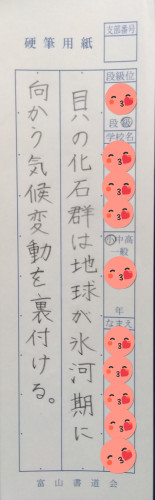 硬筆用紙
支部番号
段級位
段
学校名
中高
一般
年
なまえ
貝の化石群は地球が氷河期に
向かう気候変動を裏付ける。
富山書道会